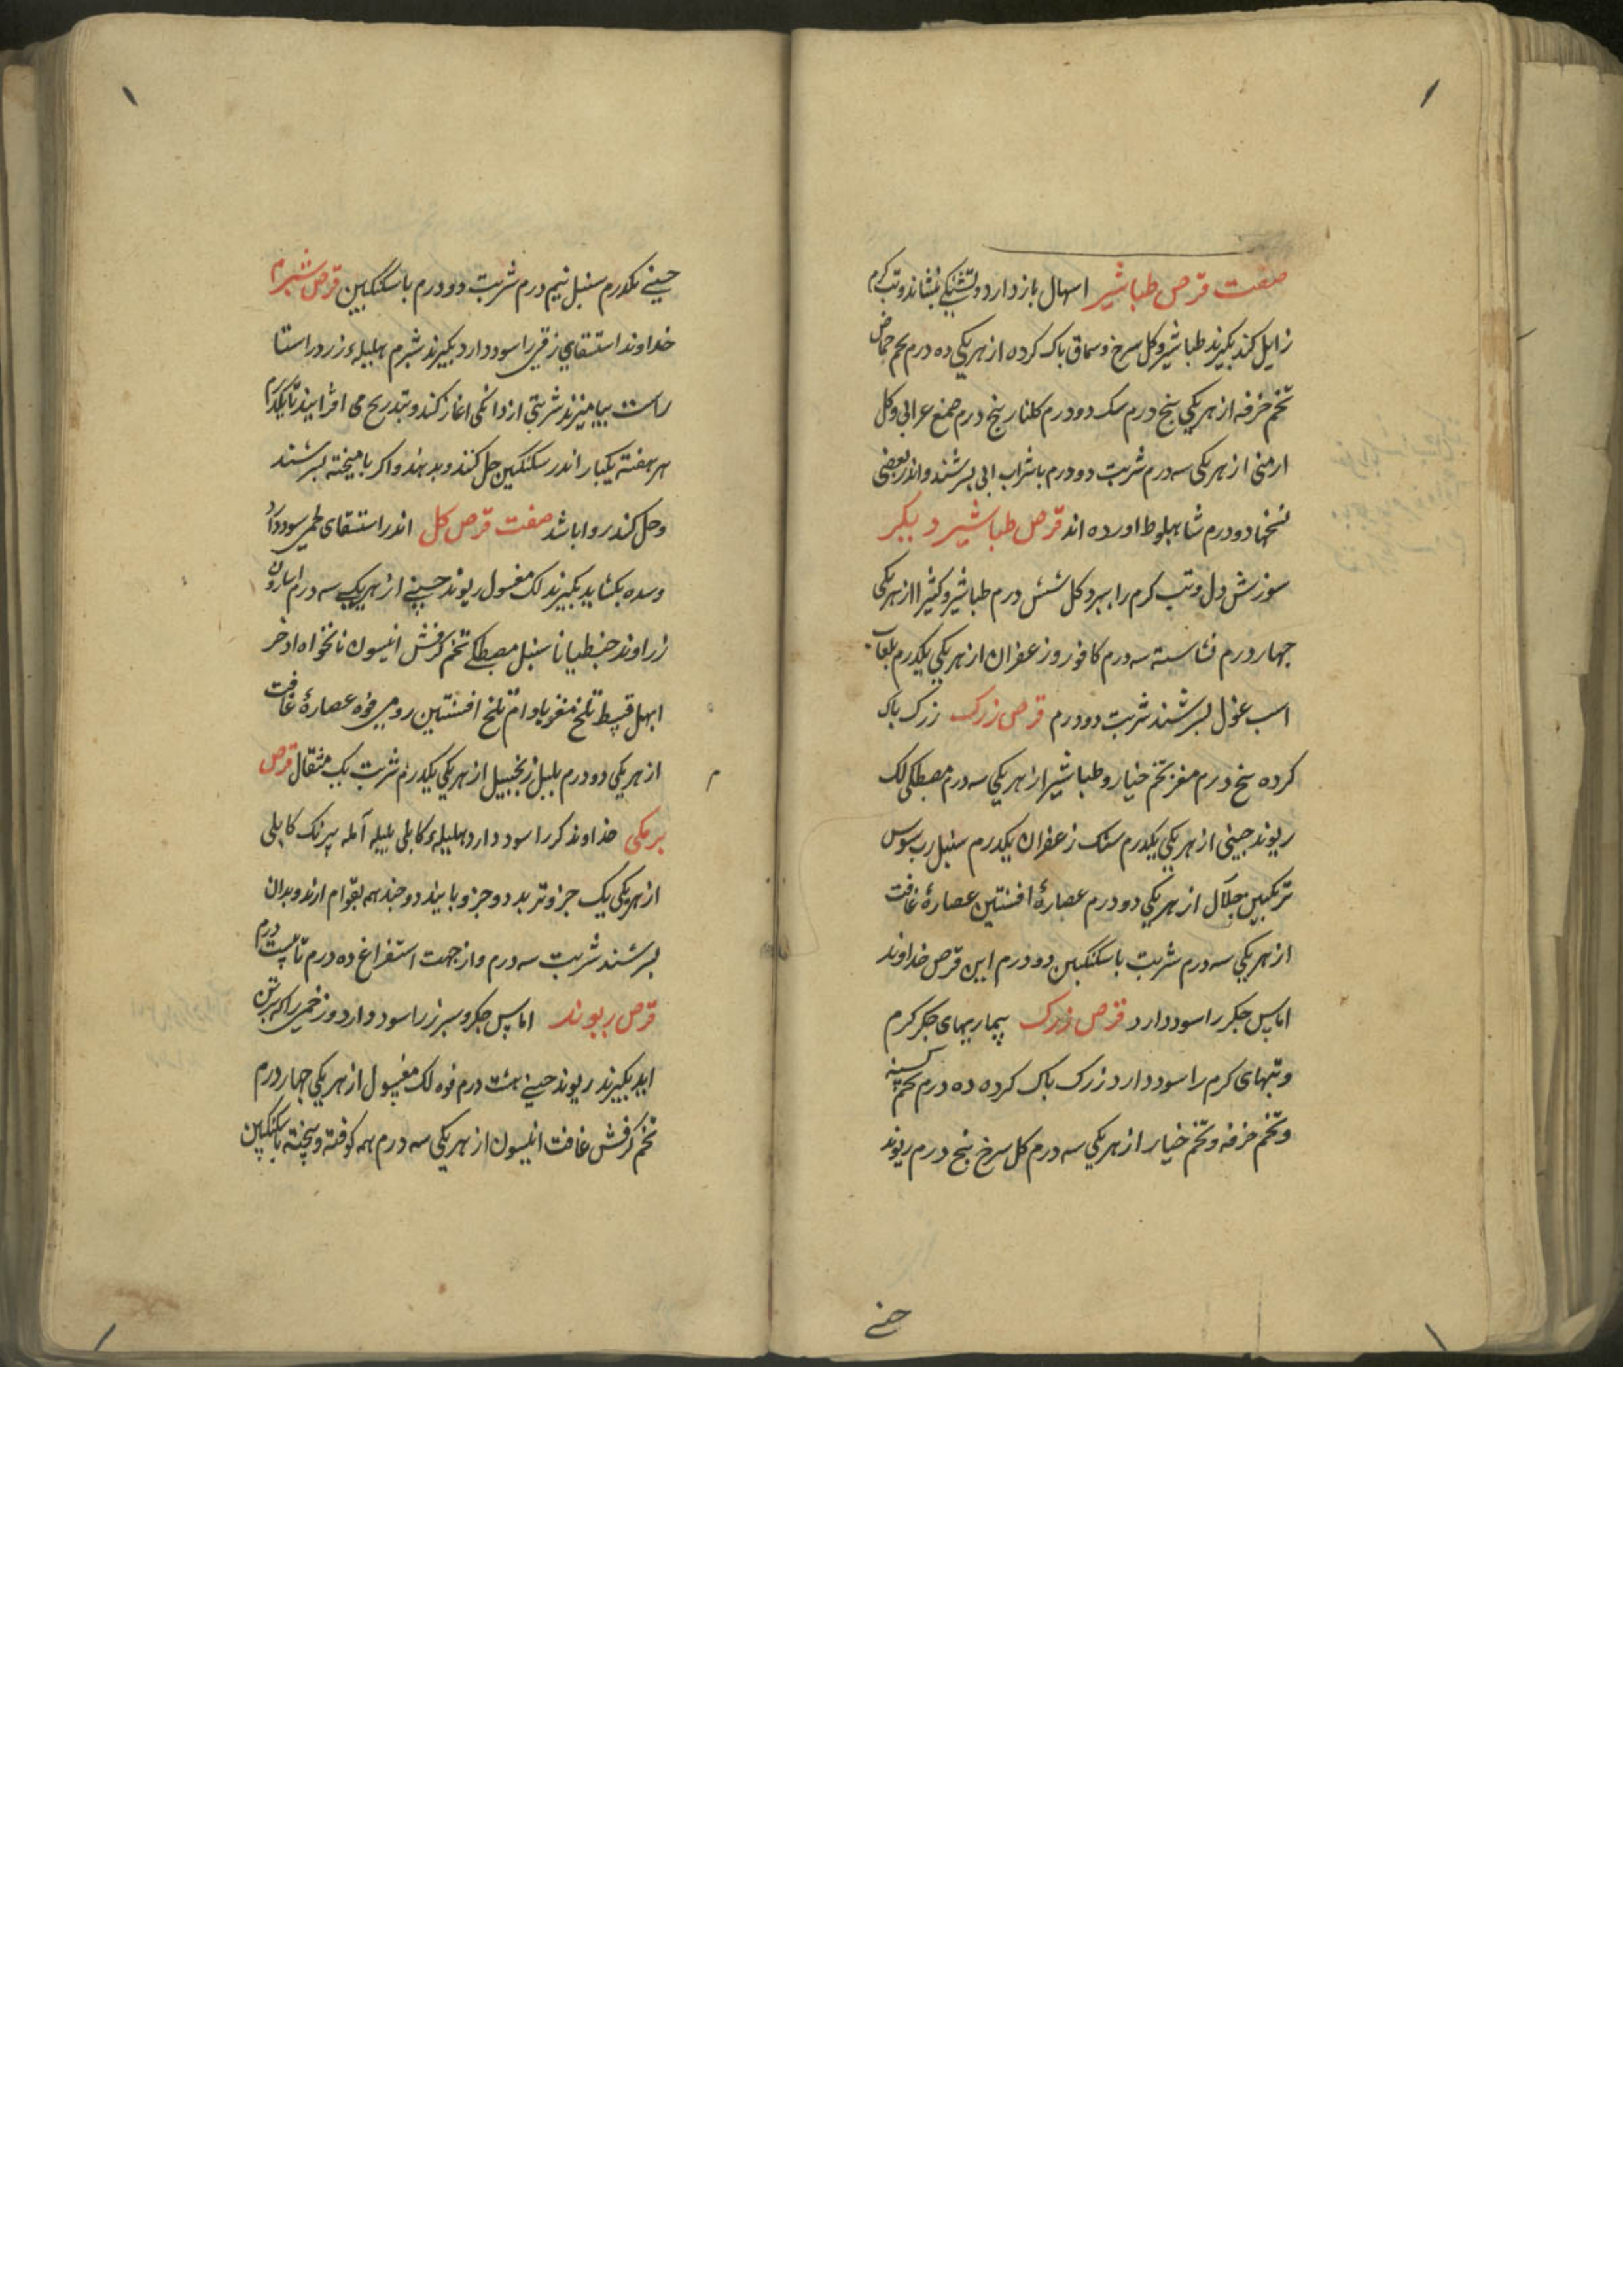 صفت قرص طباشیر اسهال باز دارد و تشنکی بنشاند و تب کرم
زایل کند بکیرند طباشیر و کل سرخ و سماق باک کرده از هریکی ده درم تخم حماض
تخم خرفه از هریکی بنج درم سک دو درم کلنار بنج درم صمغ عرابی و کل
ارمنی از هریکی سه درم شربت دو درم با شراب ابی بسرشند و اندر بعضی
نسخها دو درم شاهبلوط اورده اند قرص طباشیر دیکر
سوزش دل و تب کرم را ببرد کل شش درم طباشیر و کثیرا از هریکی
جهار درم نشاسته سه درم کافور و زعفران از هریکی یکدرم بلعاب
اسبغول بسرشند شربت دو درم قرص زرک زرک باک
کرده بنج درم مغز تخم خیار و طباشیر از هریکی سه درم مصطکی لک
ریوند جینی از هریکی یکدرم سنک زعفران یکدرم سنبل رب سوس
ترنکبین جلال از هریکی دو درم عصارهٔ افسنتین عصارهٔ غافت
از هریکی سه درم شربت با سکنکبین دو درم این قرص خداوند
اماس جکر را سود دارد قرص زرک بیماریهای جکر کرم
و تبهای کرم را سود دارد زرک باک کرده ده درم تخم کسنه
و تخم خرفه و تخم خیار از هریکی سه درم کل سرخ بنج درم ریوند
جینے یکدرم سنبل نیم درم شربت دو درم با سکنکبین قرص شبرم
خداوند استسقای زقی را سود دارد بکیرند شبرم هلیلهء زرد راستا
راست بیامیزند شربتی از دانکی اغاز کند و بتدریج می افزایند تا یکدرم
هر هفته یکبار اندر سکنکبین حل کنند و بدهند و اکر بامیخته بسرشند
و حل کند روا باشد صفت قرص کل اندر استسقای لحمی سود دارد
و سده بکشاید بکیرند لک مغسول ریوند جینے از هریکے سه درم اسارون
زراوند جنطیانا سنبل مصطکے تخم کرفش انیسون نانخواه اذخر
ابهل قسط تلخ مغز بادام تلخ افسنتین رومی فوه عصارهٔ غافت
از هریکی دو درم بلبل زنجبیل از هریکی یکدرم شربت یک مثقال قرص
برمکی خداوند کر را سود دارد هلیلهء کابلی بلیله آمله برنک کابلی
از هریکی یک جزو تربد دو جزو بانید دو جند همه بقوام ارند و بدان
بسرشند شربت سه درم و از جهت استفراغ ده درم تا بیست درم
قرص ریوند اماس جکر و سبرز را سود دارد و زخمی را که بر تن
اید بکیرند ریوند جینے هشت درم فوه لک مغسول از هریکی جهار درم
تخم کرفش غافت انیسون از هریکی سه درم همه کوفته و بیخته با سکنکبین